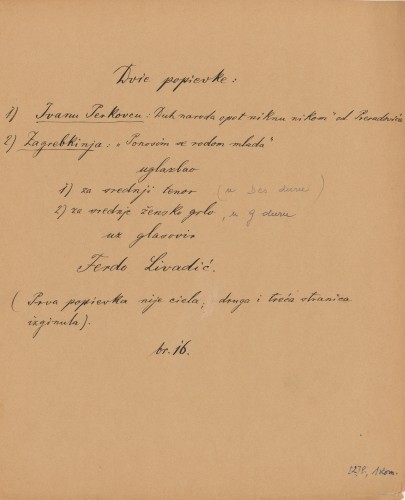 Dvie popievke:
1) Ivanu Perkovcu: „Duh naroda opet niknu nikom" od Preradovića
2) Zagrebkinja: „Ponosim se rodom mlada"
uglazbio
1) za srednji tenor (u Des duru)
2) za srednje žensko grlo, u g duru
uz glasovir
Ferdo Livadić.
(Prva popievka nije ciela; druga i treća stranica
izginula).
br. 16.